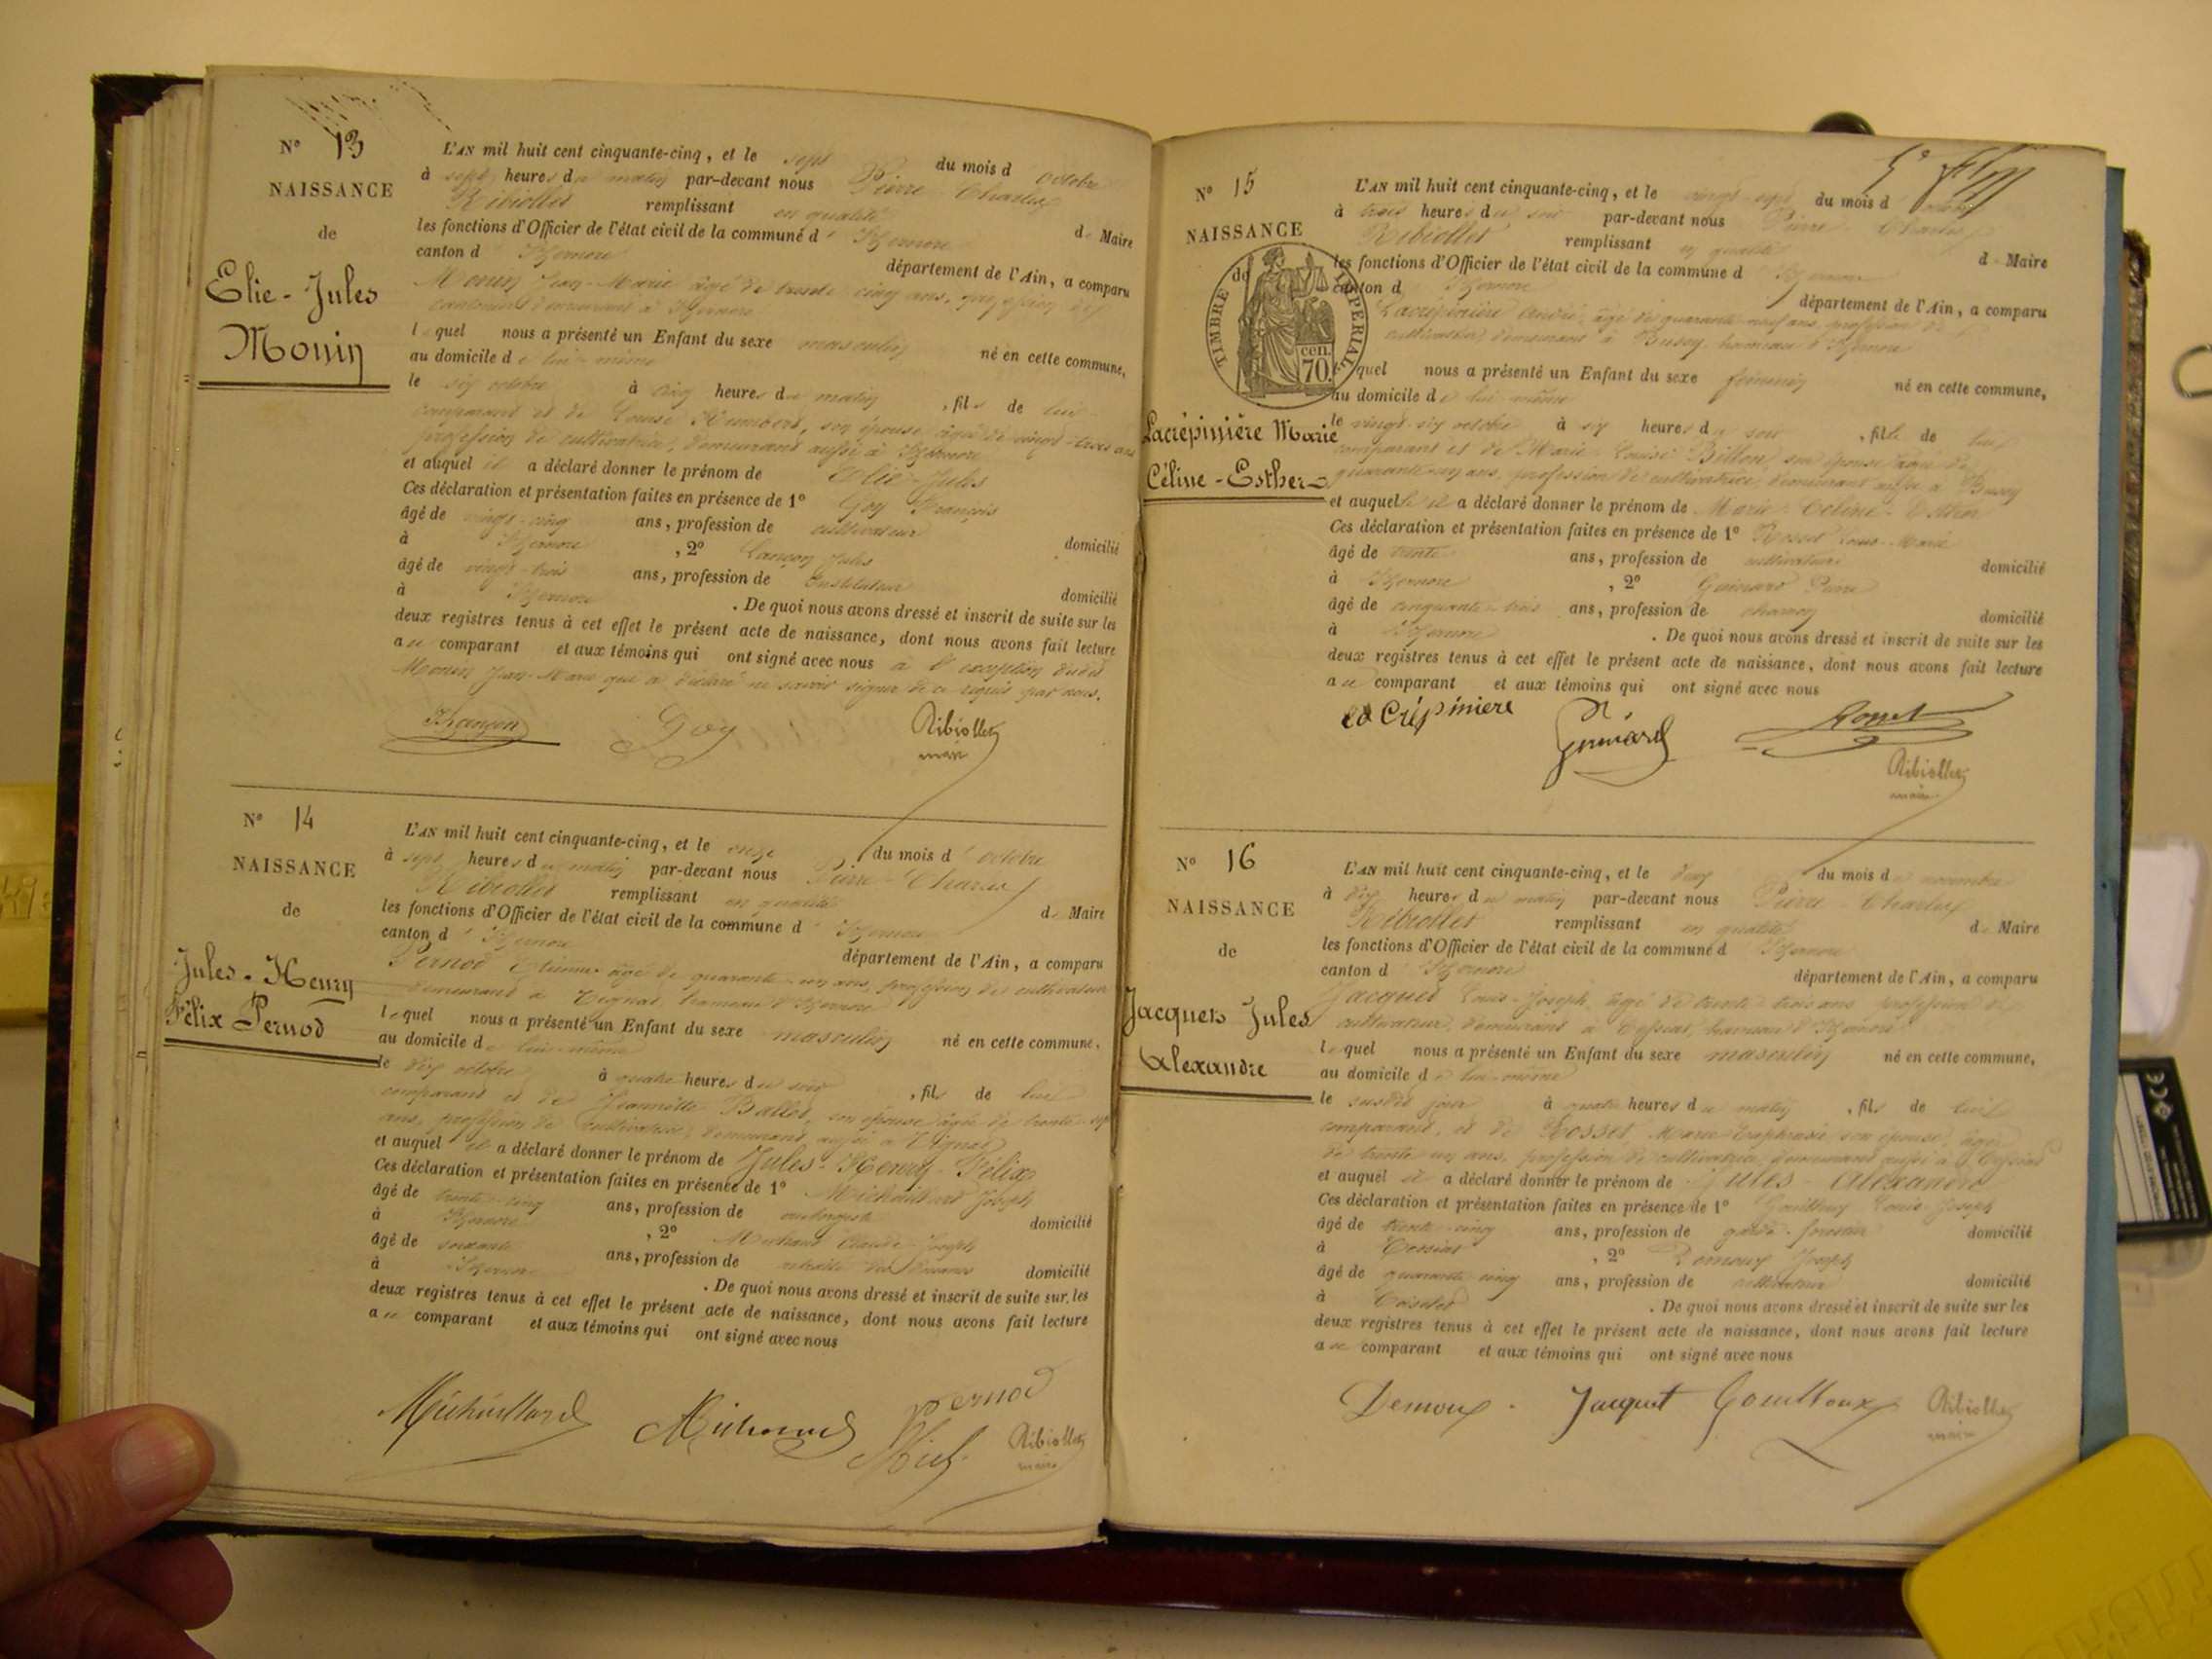 N° 13
NAISSANCE
de
Elie-Jules
Monin
L'AN mil huit cent cinquante-cinq, et le sept du mois d' octobre
à sept heures du matin par-devant nous Pierre Charles
Ribiollet remplissant en qualité de Maire
les fonctions d'Officier de l'état civil de la commune d' Izernore
canton d' Izernore département de l'Ain, a comparu
Monin Jean-Marie âgé de trente cinq ans, profession de
demeurant à Izernore
lequel nous a présenté un Enfant du sexe masculin né en cette commune,
au domicile de lui même
le six octobre à cinq heures du matin, fils de lui
comparant et de Louise Humbert, son épouse âgée de vingt-trois ans
profession de cultivatrice, demeurant aussi à Izernore
et auquel il a déclaré donner le prénom de Elie-Jules
Ces déclaration et présentation faites en présence de 1° Goy François
âgé de vingt-cinq ans, profession de cultivateur domicilié
à Izernore, 2° Lançon Jules
âgé de vingt-trois ans, profession de Instituteur domicilié
à Izernore. De quoi nous avons dressé et inscrit de suite sur les
deux registres tenus à cet effet le présent acte de naissance, dont nous avons fait lecture
au comparant et aux témoins qui ont signé avec nous à l'exception dudit
Monin Jean-Marie qui a déclaré ne savoir signer de ce requis par nous.
Goy Ribiollet
maire
N° 14
NAISSANCE
de
Jules-Henry
Félix Pernod
L'AN mil huit cent cinquante-cinq, et le onze du mois d' octobre
à sept heures du matin par-devant nous Pierre-Charles
Ribiollet remplissant en qualité de Maire
les fonctions d'Officier de l'état civil de la commune d' Izernore
canton d' Izernore département de l'Ain, a comparu
Pernod Etienne âgé de quarante-un ans, profession de cultivateur
demeurant à Tignat, hameau d'Izernore
lequel nous a présenté un Enfant du sexe masculin né en cette commune,
au domicile de lui-même
le dix octobre à quatre heures du soir, fils de lui
comparant et de Jeannette Ballet, son épouse âgée de trente-sept
ans, profession de cultivatrice, demeurant aussi à Tignat
et auquel il a déclaré donner le prénom de Jules-Henry-Félix
Ces déclaration et présentation faites en présence de 1° Michaillard Joseph
âgé de trente-cinq ans, profession de aubergiste domicilié
à Izernore, 2° Michaud Claude-Joseph
âgé de soixante ans, profession de retraité des Douanes domicilié
à Izernore. De quoi nous avons dressé et inscrit de suite sur les
deux registres tenus à cet effet le présent acte de naissance, dont nous avons fait lecture
au comparant et aux témoins qui ont signé avec nous
Michaillard Michaud Pernod
Ribiollet
maire
N° 15
NAISSANCE
de
TIMBRE IMPERIAL
cen.
70.
Lacrépinière Marie
Céline-Esther
L'AN mil huit cent cinquante-cinq, et le vingt-sept du mois d' octobre
à trois heures du soir par-devant nous Pierre-Charles
Ribiollet remplissant en qualité de Maire
les fonctions d'Officier de l'état civil de la commune d' Izernore
canton d' Izernore département de l'Ain, a comparu
Lacrépinière André, âgé de quarante-neuf ans, profession de
cultivateur, demeurant à Bussy, hameau d'Izernore
lequel nous a présenté un Enfant du sexe féminin né en cette commune,
au domicile de lui même
le vingt-six octobre à six heures du soir, fille de lui
comparant et de Marie-Louise Billon, son épouse âgée de
quarante-un ans, profession de cultivatrice, demeurant aussi à Bussy
et auquel il a déclaré donner le prénom de Marie-Céline-Esther
Ces déclaration et présentation faites en présence de 1° Rosset Louis-Marie
âgé de trente ans, profession de cultivateur domicilié
à Izernore, 2° Guinard Pierre
âgé de cinquante-trois ans, profession de charron domicilié
à Izernore. De quoi nous avons dressé et inscrit de suite sur les
deux registres tenus à cet effet le présent acte de naissance, dont nous avons fait lecture
au comparant et aux témoins qui ont signé avec nous
la Crépiniere Guinard Rosset
Ribiollet
maire
N° 16
NAISSANCE
de
Jacquet Jules
Alexandre
L'AN mil huit cent cinquante-cinq, et le deux du mois de novembre
à dix heures du matin par-devant nous Pierre-Charles
Ribiollet remplissant en qualité de Maire
les fonctions d'Officier de l'état civil de la commune d' Izernore
canton d' Izernore département de l'Ain, a comparu
Jacquet Louis-Joseph, âgé de trente-trois ans, profession de
cultivateur, demeurant à Cessiat, hameau d'Izernore
lequel nous a présenté un Enfant du sexe masculin né en cette commune,
au domicile de lui-même
le susdit jour à quatre heures du matin, fils de lui
comparant, et de Rosset Marie-Euphrasie son épouse, âgée
de trente-un ans, profession de cultivatrice, demeurant aussi à Cessiat
et auquel il a déclaré donner le prénom de Jules-Alexandre
Ces déclaration et présentation faites en présence de 1° Gouilloux Louis-Joseph
âgé de trente-cinq ans, profession de garde-forestier domicilié
à Cessiat, 2° Demoux Joseph
âgé de quarante-cinq ans, profession de cultivateur domicilié
à. De quoi nous avons dressé et inscrit de suite sur les
deux registres tenus à cet effet le présent acte de naissance, dont nous avons fait lecture
au comparant et aux témoins qui ont signé avec nous
Demoux. Jacquet Gouilloux Ribiollet
maire